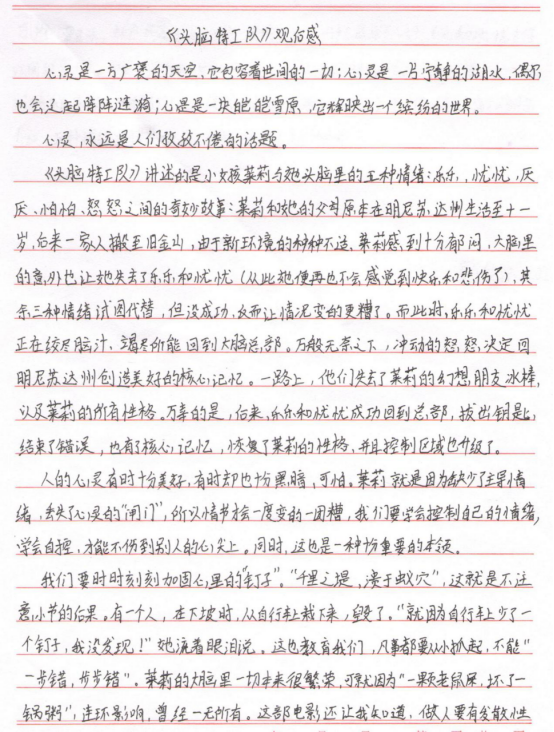 《头脑特工队》观后感
心灵是一方广袤的天空，它包容着世间的一切；心灵是一片宁静的湖水，偶尔
也会泛起阵阵涟漪；心灵是一块皑皑雪原，它辉映出一个缤纷的世界。
心灵，永远是人们孜孜不倦的话题。
《头脑特工队》讲述的是小女孩莱莉与她头脑里的五种情绪：乐乐，忧忧，厌
厌、怕怕、怒怒之间的奇妙故事：莱莉和她的父母原本在明尼苏达州生活至十一
岁，后来一家人搬至旧金山，由于新环境的种种不适，莱莉感到十分郁闷，大脑里
的意外也让她失去了乐乐和忧忧（从此她便再也不会感觉到快乐和悲伤了），其
余三种情绪试图代替，但没成功，反而让情况变的更糟了。而此时，乐乐和忧忧
正在绞尽脑汁、竭尽所能回到大脑总部。万般无奈之下，冲动的怒怒决定回
明尼苏达州创造美好的核心记忆。一路上，他们失去了莱莉的幻想朋友冰棒，
以及莱莉的所有性格。万幸的是，后来，乐乐和忧忧成功回到总部，拔出钥匙，
结束了错误，也有了核心记忆，恢复了莱莉的性格，并且控制区域也升级了。
人的心灵有时十分美好，有时却也十分黑暗，可怕。莱莉就是因为缺少了主导情
绪，丢失了心灵的"闸门"，所以情书才会一度变的一团糟，我们要学会控制自己的情绪，
学会自控，才能不伤到别人的心尖上。同时，这也是一种十分重要的本领。
我们要时时刻刻加固心里的"钉子"。"千里之堤，溃于蚁穴"，这就是不注
意小节的后果。有一个人，在下坡时，从自行车上栽下来，毁了。"就因为自行车上少了一
个钉子，我没发现！"她流着眼泪说。这也教育我们，凡事都要从小抓起，不能"
一步错，步步错"。莱莉的大脑里一切本来很繁荣，可就因为"一颗老鼠屎，坏了一
锅粥"，连环影响，曾经一无所有。这部电影还让我知道，做人要有发散性